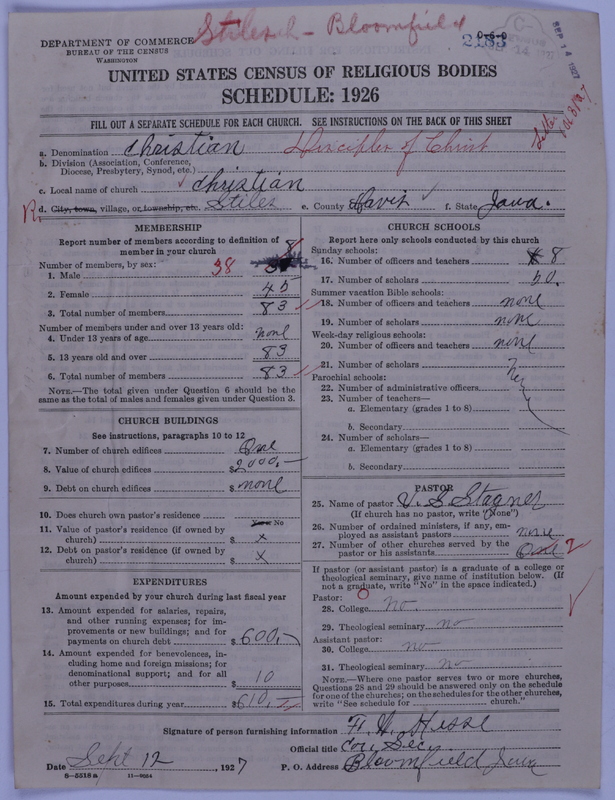 Stiles - Bloomfield
DEPARTMENT OF COMMERCE
BUREAU OF THE CENSUS
WASHINGTON
SEP 14 1927
UNITED STATES CENSUS OF RELIGIOUS BODIES
SCHEDULE: 1926
FILL OUT A SEPARATE SCHEDULE FOR EACH CHURCH. SEE INSTRUCTIONS ON THE BACK OF THIS SHEET
a. Denomination Christian Disciples of Christ
b. Division (Association, Conference,
Diocese, Presbytery, Synod, etc.)
c. Local name of church Christian
d. City, town, village, or township, etc. Stiles e. County Davis f. State Iowa.
MEMBERSHIP
Report number of members according to definition of
member in your church
Number of members, by sex:
1. Male 38
2. Female 45
3. Total number of members 83
Number of members under and over 13 years old:
4. Under 13 years of age none
5. 13 years old and over 83
6. Total number of members 83
NOTE.—The total given under Question 6 should be the
same as the total of males and females given under Question 3.
CHURCH BUILDINGS
See instructions, paragraphs 10 to 12
7. Number of church edifices One
8. Value of church edifices $2000.-
9. Debt on church edifices $ none
10. Does church own pastor's residence
Yes or No
11. Value of pastor's residence (if owned by
church) $ x
12. Debt on pastor's residence (if owned by
church) $ x
EXPENDITURES
Amount expended by your church during last fiscal year
13. Amount expended for salaries, repairs,
and other running expenses; for im-
provements or new buildings; and for
payments on church debt $ 600.-
14. Amount expended for benevolences, in-
cluding home and foreign missions; for
denominational support; and for all
other purposes $ 10
15. Total expenditures during year $610.-
CHURCH SCHOOLS
Report here only schools conducted by this church
Sunday schools:
16. Number of officers and teachers 8
17. Number of scholars 50.
Summer vacation Bible schools:
18. Number of officers and teachers none
19. Number of scholars none
Week-day religious schools:
20. Number of officers and teachers none
21. Number of scholars
Parochial schools:
22. Number of administrative officers
23. Number of teachers—
a. Elementary (grades 1 to 8)
b. Secondary
24. Number of scholars—
a. Elementary (grades 1 to 8)
b. Secondary
PASTOR
25. Name of pastor V. S Stagner
(If church has no pastor, write "None")
26. Number of ordained ministers, if any, em-
ployed as assistant pastors none
27. Number of other churches served by the
pastor or his assistants One 2
If pastor (or assistant pastor) is a graduate of a college or
theological seminary, give name of institution below. (If
not a graduate, write "No" in the space indicated.)
Pastor:
28. College no
29. Theological seminary no
Assistant pastor:
30. College no
31. Theological seminary no
NOTE.—Where one pastor serves two or more churches,
Questions 28 and 29 should be answered only on the schedule
for one of the churches; on the schedules for the other churches,
write "See schedule for church."
Signature of person furnishing information
Official title Cor Secy
Date Sept 12, 1927 P. O. Address Bloomfield Iowa
8-5518 a 11-9554